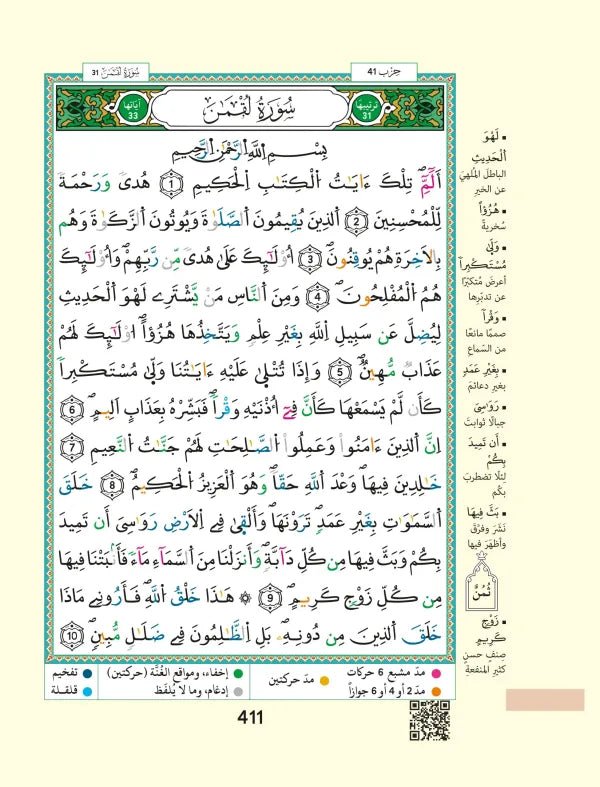 سُورَةُ لُقْمَٰنَ 31
حِزْب 41
ترتيبها 31
سُورَةُ لُقْمَٰنَ
آياتها 33
بِسْمِ اللَّهِ الرَّحْمَٰنِ الرَّحِيمِ
أَلَٓمِّٓۖ تِلْكَ ءَايَٰتُ اُ۬لْكِتَٰبِ اِ۬لْحَكِيمِ 1 هُدىٗ وَرَحْمَةٗ
لِّلْمُحْسِنِينَ 2 اَ۬لذِينَ يُقِيمُونَ اَ۬لصَّلَوٰةَ وَيُوتُونَ اَ۬لزَّكَوٰةَ وَهُم
بِالَاخِرَةِ هُمْ يُوقِنُونَۖ 3 أُوْلَٰٓئِكَ عَلَىٰ هُدىٗ مِّن رَّبِّهِمْۖ وَأُوْلَٰٓئِكَ
هُمُ اُ۬لْمُفْلِحُونَۖ 4 وَمِنَ اَ۬لنَّاسِ مَنْ يَّشْتَرِے لَهْوَ اَ۬لْحَدِيثِ
لِيُضِلَّ عَن سَبِيلِ اِ۬للَّهِ بِغَيْرِ عِلْمٖ وَيَتَّخِذُهَا هُزُؤاًۖ ا۟وْلَٰٓئِكَ لَهُمْ
عَذَابٞ مُّهِينٞۖ 5 وَإِذَا تُتْلَىٰ عَلَيْهِ ءَايَٰتُنَا وَلَّىٰ مُسْتَكْبِراٗ
كَأَن لَّمْ يَسْمَعْهَا كَأَنَّ فِےٓ أُذْنَيْهِ وَقْراٗۖ فَبَشِّرْهُ بِعَذَابٍ اَلِيمٍۖ 6
اِنَّ اَ۬لذِينَ ءَامَنُواْ وَعَمِلُواْ اُ۬لصَّٰلِحَٰتِ لَهُمْ جَنَّٰتُ اُ۬لنَّعِيمِ 7
خَٰلِدِينَ فِيهَا وَعْدَ اَ۬للَّهِ حَقّاٗۖ وَهُوَ اَ۬لْعَزِيزُ اُ۬لْحَكِيمُۖ 8 خَلَقَ
اَ۬لسَّمَٰوَٰتِ بِغَيْرِ عَمَدٖ تَرَوْنَهَاۖ وَأَلْقَىٰ فِے اِ۬لَارْضِ رَوَٰسِيَ أَن تَمِيدَ
بِكُمْ وَبَثَّ فِيهَا مِن كُلِّ دَآبَّةٖۖ وَأَنزَلْنَا مِنَ اَ۬لسَّمَآءِ مَآءٗ فَأَنۢبَتْنَا فِيهَا
مِن كُلِّ زَوْجٖ كَرِيمٍۖ 9 ۞ هَٰذَا خَلْقُ اُ۬للَّهِۖ فَأَرُونِے مَاذَا
خَلَقَ اَ۬لذِينَ مِن دُونِهِۦۖ بَلِ اِ۬لظَّٰلِمُونَ فِے ضَلَٰلٖ مُّبِينٖۖ 10
• لَهْوَ
اَ۬لْحَدِيثِ
الباطلَ المُلهِيَ
عن الخيرِ
• هُزُؤاً
سُخريةً
• وَلَّىٰ
مُسْتَكْبِراٗ
أعرضَ مُتكبّرًا
عن تدبّرِها
• وَقْراٗ
صممًا مانعًا
من السّماعِ
• بِغَيْرِ عَمَدٖ
بغيرِ دعائمَ
• رَوَٰسِيَ
جبالًا ثوابتَ
• أَن تَمِيدَ
بِكُمْ
لِئلّا تضطربَ
بكُم
• بَثَّ فِيهَا
نَشَرَ وفرَّقَ
وأظهَرَ فيها
ثُمُنٌ
• زَوْجٖ
كَرِيمٍ
صِنفٍ حسنٍ
كثيرِ المنفعةِ
مدّ مشبع 6 حركات
مدّ حركتين
إخفاء، ومواقع الغُنَّة (حركتين)
تفخيم
مدّ 2 أو 4 أو 6 جوازاً
إدغام، وما لا يُلفَظ
قلقلة
411